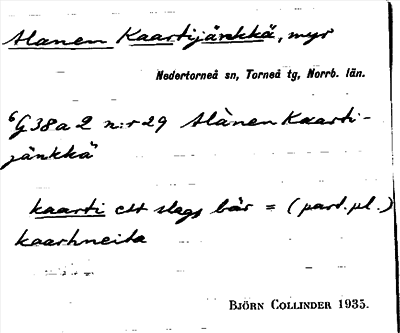 Alanen Kaartijänkkä, myr
Nedertorneå sn, Torneå tg, Norrb. län.
6 G38a2 n:r 29 Alànen Kaarti-
jänkkä
kaarti ett slags bär = (part. pl.)
kaarhneita
BJÖRN COLLINDER 1935.